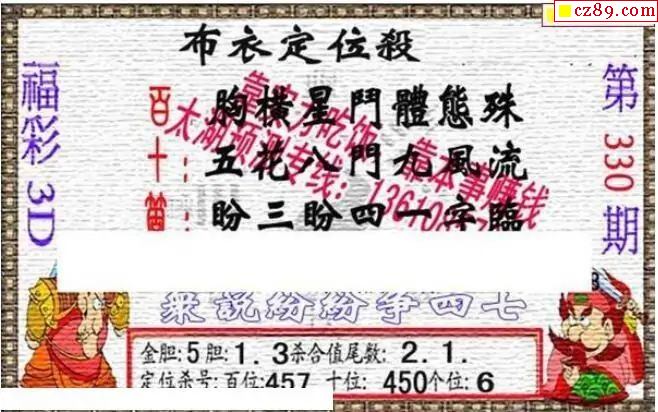 cz89.com
布衣定位殺
福彩3D
第330期
百：胸橫星鬥體態殊
十：五花八門九風流
盼三盼四一字臨
靠实力吃饭 靠本事赚钱
太湖预测专线：13610
衆説紛紛爭四七
金胆:5 胆:1.3 杀合值尾数:2.1.
定位杀号:百位:457 十位:450 个位:6